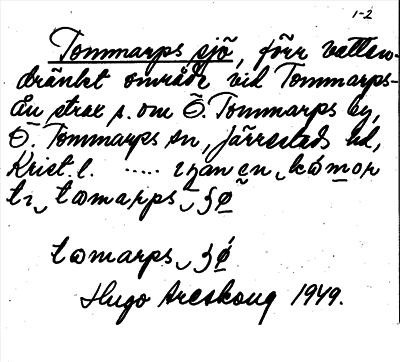 1-2
Tommarps sjö, förr vatten-
dränkt område vid Tommarps-
ån strax s. om Ö. Tommarps by,
Ö. Tommarps sn, Järrestads hd,
Krist. l. ..... 
tomarps
Hugo Areskoug 1949.